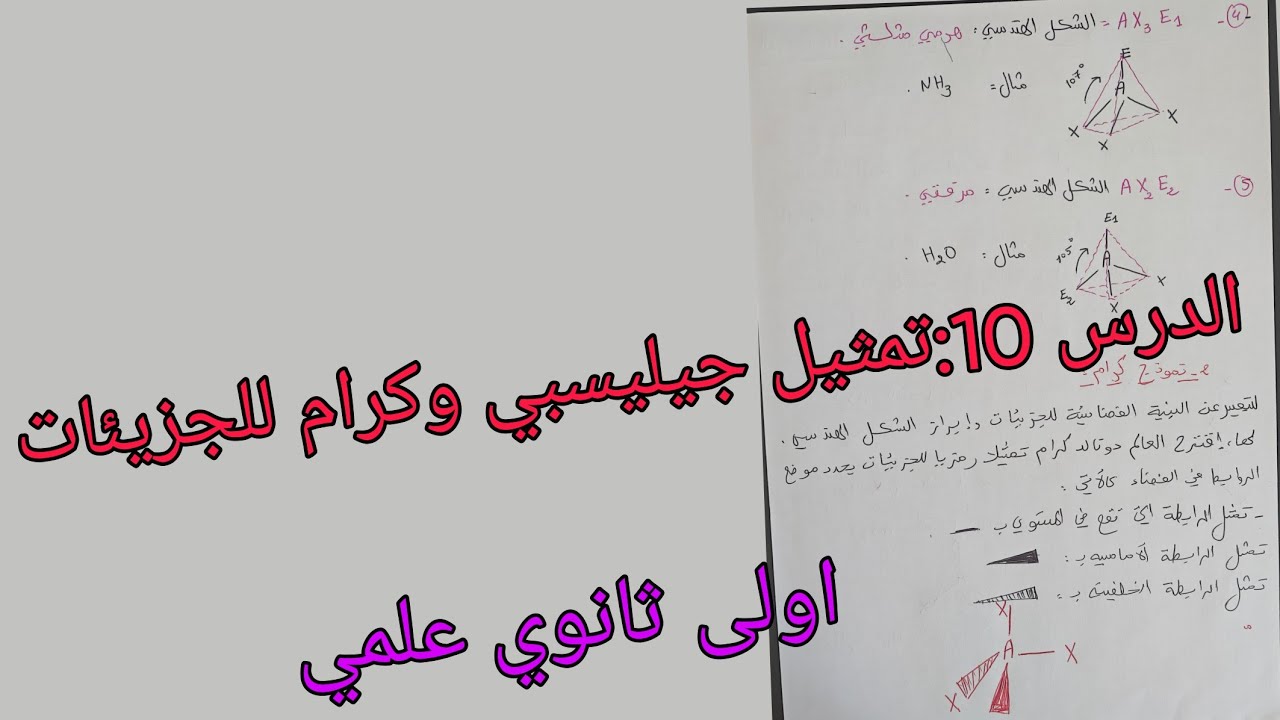 4 - AX3 E1 = الشكل الهندسي: هرمي مثلثي.
E
107°
A
مثال = NH3.
X
X
X
5 - AX2 E2 الشكل الهندسي = مرفقي.
E1
105°
A
مثال: H2O.
E2
X
X
الدرس 10:تمثيل جيليسبي وكرام للجزيئات
2 - نموذج كرام:
للتعبير عن البنية الفضائية للجزيئات و إبراز الشكل الهندسي
لها، إقترح العالم دونالد كرام تمثيلا رمزيا للجزيئات يحدد موضع
الروابط في الفضاء كالآتي:
- تمثل الرابطة التي تقع في المستوي ب
تمثل الرابطة الأمامية ب:
تمثل الرابطة الخلفية ب:
X
A
X
X
اولى ثانوي علمي